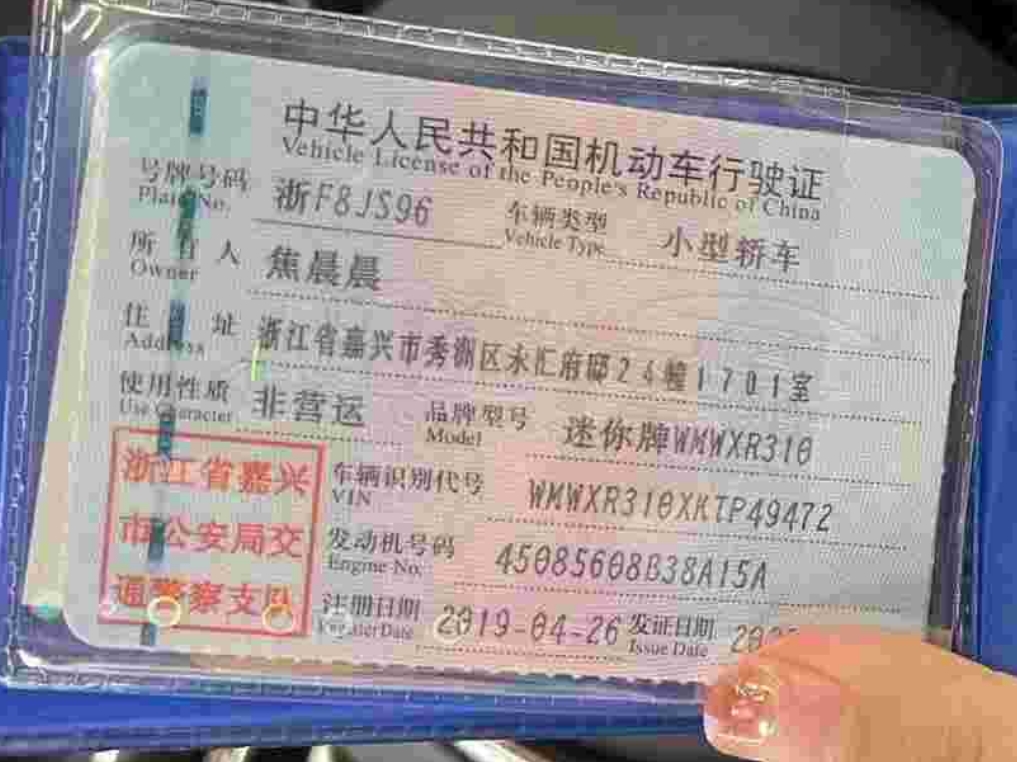 中华人民共和国机动车行驶证
Vehicle License of the People's Republic of China
号牌号码 浙F8JS96 车辆类型 小型轿车
Plate No. Vehicle Type
所有人 焦晨晨
Owner
住址 浙江省嘉兴市秀洲区永汇府邸24幢1701室
Address
使用性质 非营运 品牌型号 迷你牌WMWXR310
Use Character Model
浙江省嘉兴
市公安局交
通警察支队
车辆识别代号 WMWXR310XKTP49472
VIN
发动机号码 45085608B38A15A
Engine No.
注册日期 2019-04-26 发证日期
Register Date Issue Date